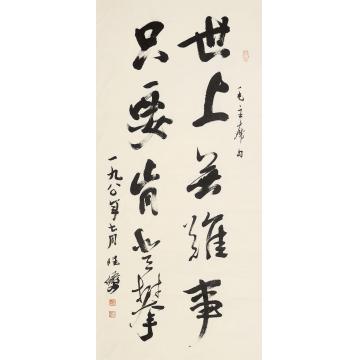 世上無難事
只要肯登攀
毛主席句
一九八〇年七月